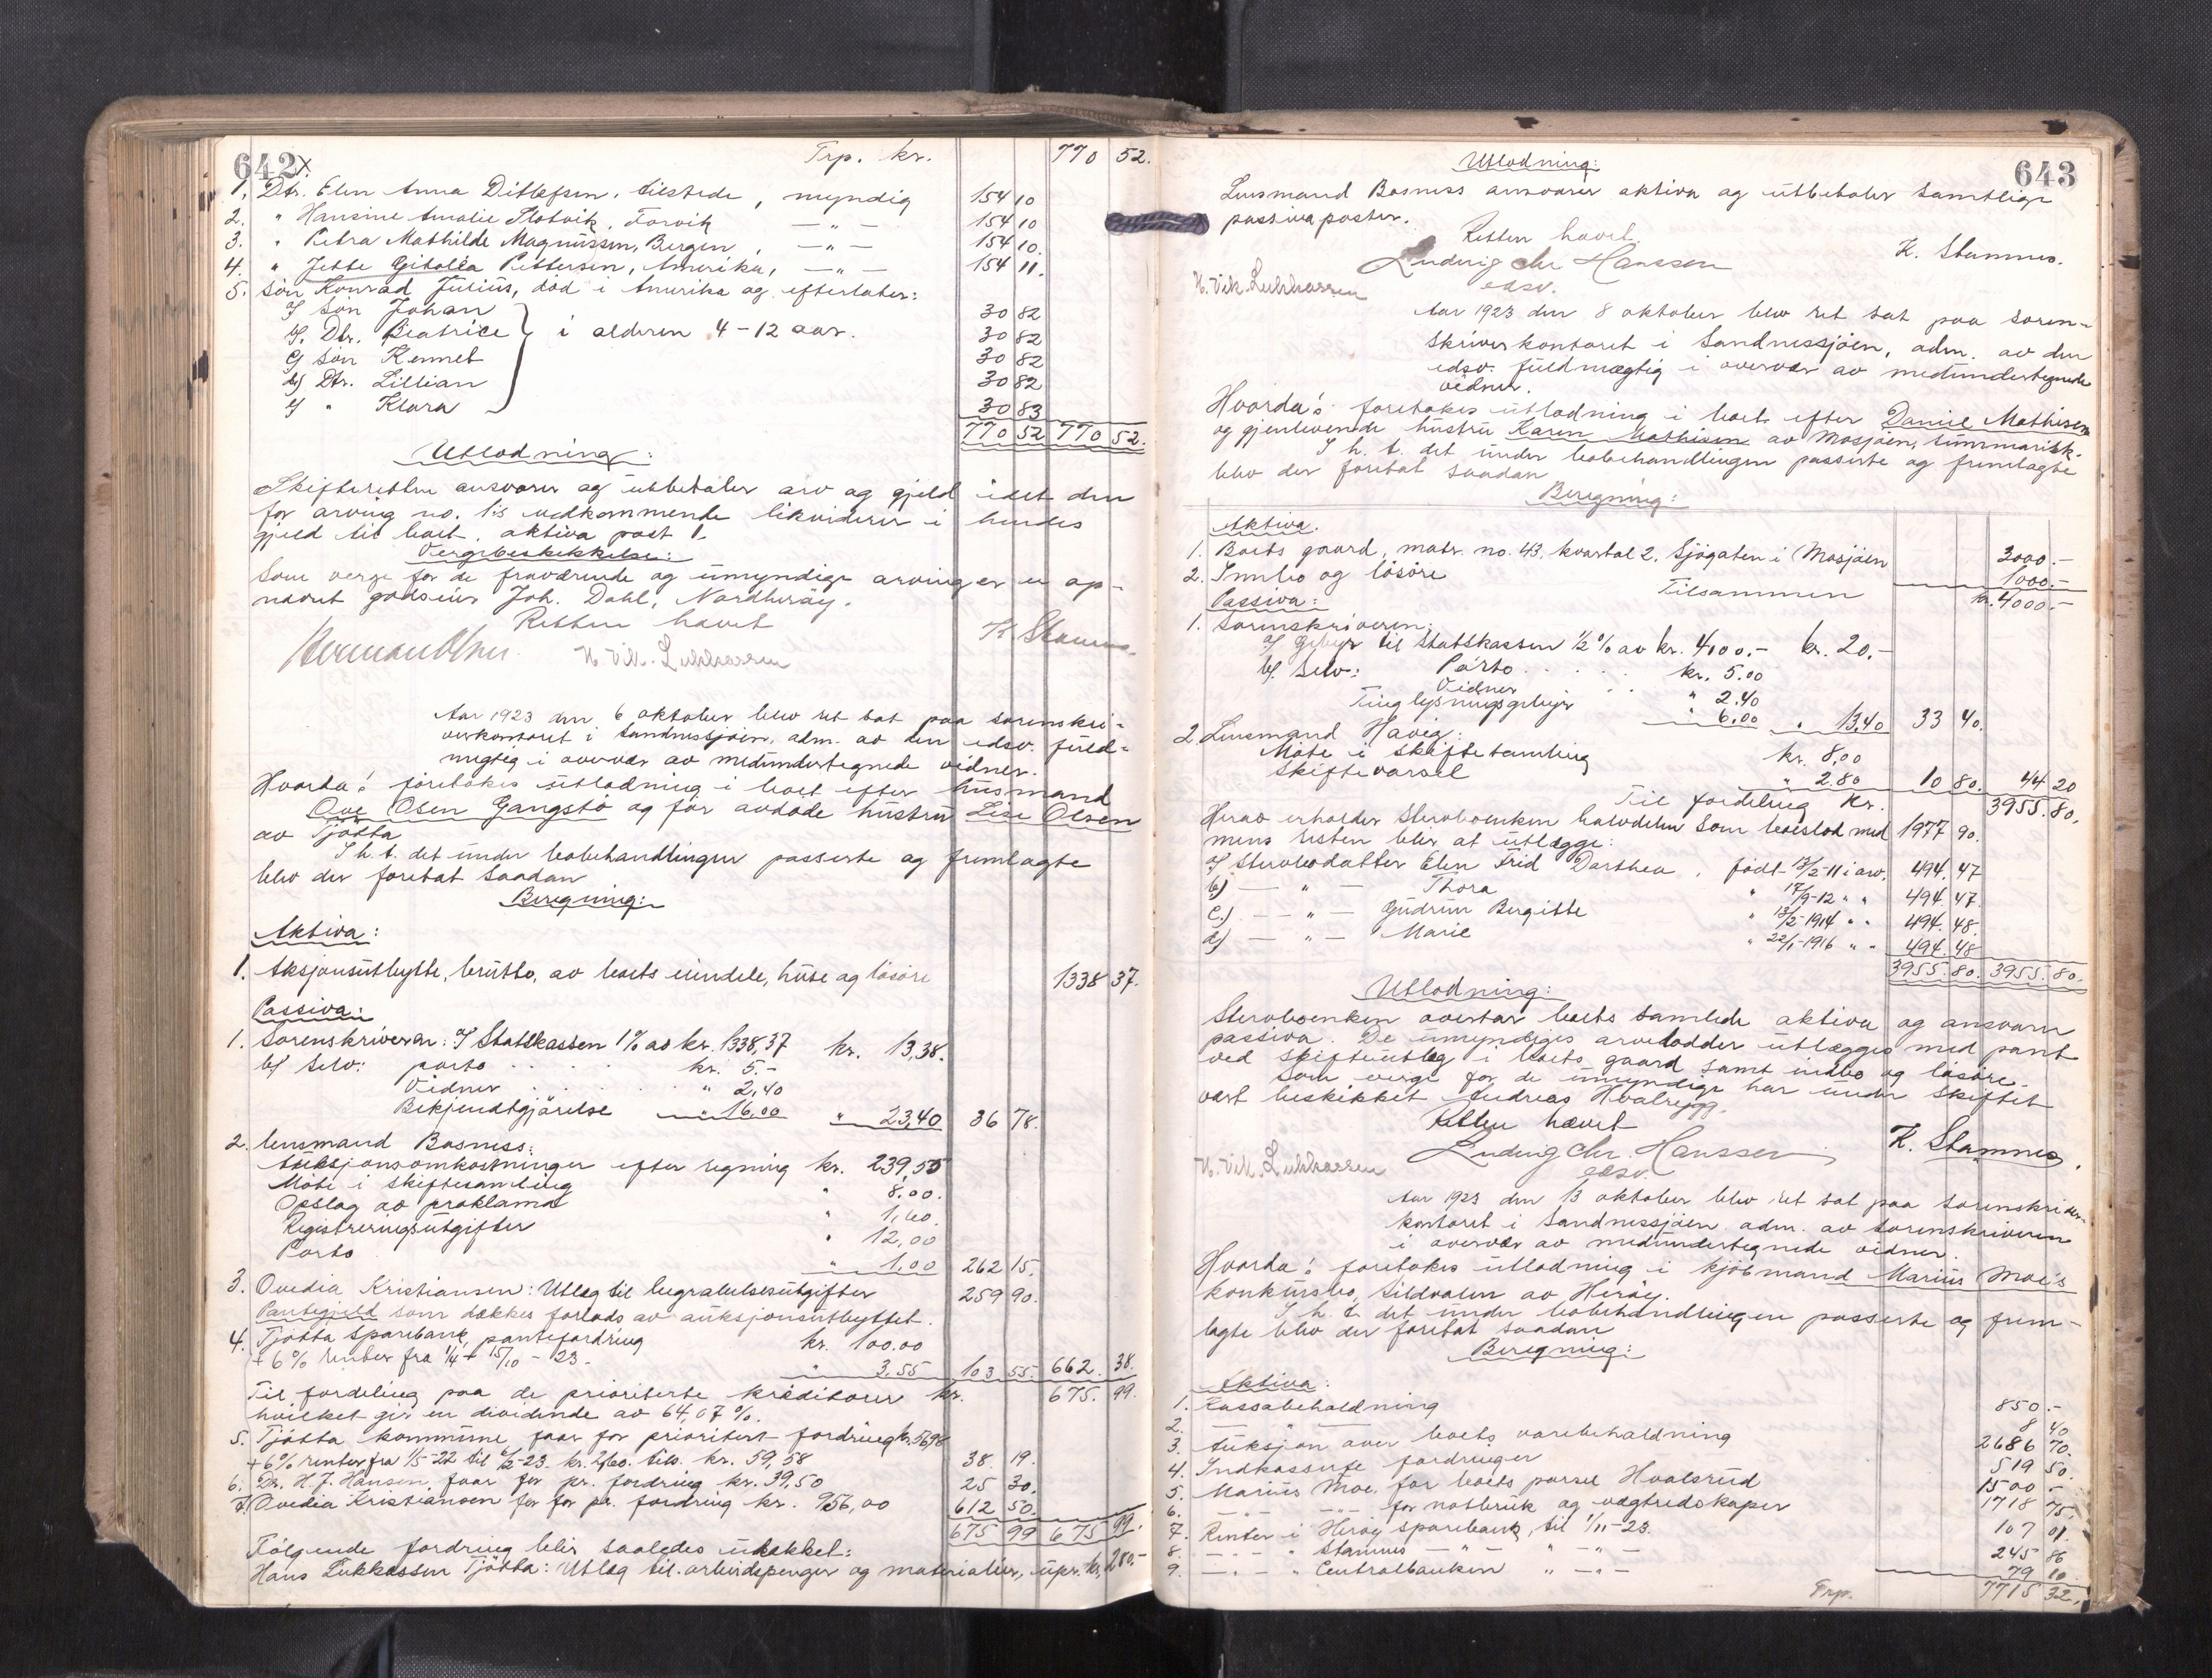 642 x Trp. kr. 770 52.
1. Dtr. Elen Anna Ditlefsen, tilstede, myndig 154 10
2. " Hansine Amalie Slotvik, Forvik — " — 154 10
3. " Petra Mathilde Magnussen, Bergen, — " — 154 10.
4. " Jette Gitolla Pettersen, Amerika, — " — 154 11.
5. Sön Konrad Julius, död i Amerika og efterlater:
a/ Sön Johan 30 82
b/. Dtr. Beatrice } i alderen 4-12 aar. 30 82
c/ Sön Kennet 30 82
d/ Dtr. Lillian 30 82
e/ " Klara 30 83
770 52 770 52.
Utlodning:
Skifteretten ansvarer og utbetaler arv og gjeld idet den
for arving no. 1:s vedkommende likviderer i hendes
gjeld til boet, aktiva post 1.
Vergebeskikkelse:
Som verge for de fraværende og umyndige arvinger er op-
nævnt godseier Joh. Dahl, Nordheröy.
Retten hævet
Herman Olsen. H. Vik-Lukkassen K. Stamnes.
Aar 1923 den 6 oktober blev ret sat paa sorenskri-
verkontoret i Sandnessjöen, adm. av den edsv. fuld-
megtig i overvær av medundertegnede vidner.
Hvorda: foretokes utlodning i boet efter husmand
Ove Olsen Gangstö og för avdöde hustru Lise Olsen
av Tjötta
I h. t. det under bobehandlingen passerte og fremlagte
blev der foretat saadan
Beregning:
Aktiva:
1. Auksjonsutbytte, brutto, av boets eiendele, huse og lösöre 1338 37.
Passiva:
1. Sorenskriveren: a/ Statskassen 1% av kr. 1338,37 kr. 13,38.
b/ Selv: porto . . . . kr. 5.-
Vidner . . . . " 2,40
Bekjendtgjörelse " 16,00 " 23,40 36 78.
2. lensmand Bosness:
Auksjonsomkostninger efter regning kr. 239,55
Möte i skiftesamling " 8,00.
Opslag av proklama " 1,60.
Registreringsutgifter " 12,00
Porto " 1,00 262 15.
3. Ovedia Kristiansen: Utlæg til begravelsesutgifter 259 90.
Pantegjeld som dækkes forlods av auksjonsutbyttet.
4. Tjötta Sparebank, pantefordring kr. 100.00
+ 6% renter fra 1/4 + 15/10 - 23. " 3,55 103 55. 662. 38.
Til fordeling paa de prioriterte kreditorer kr. 675. 99.
hvilket gir en dividende av 64,07%.
5. Tjötta kommune faar for prioritert fordring kr. 56,98
+ 6% renter fra 1/5-22 til 6/2-23. kr. 2,60. tils. kr. 59,58 38. 19.
6. Dr. H. J. Hansen faar for pr. fordring kr. 39,50 25 30.
7. Ovedia Kristiansen for for pr. fordring kr. 956,00 612 50.
675 99 675 99.
Fölgende fordring blir saaledes udækket:
Hans Lukkassen Tjötta: Utlæg til arbeidspenger og materialier, upr. kr. 280.-
643
Utlodning:
Lensmand Bosness ansvarer aktiva og utbetaler samtlige
passivaposter.
Retten hævet.
Ludvig Chr Hanssen K. Stamnes.
H. Vik-Lukkassen edsv.
Aar 1923 den 8 oktober blev ret sat paa soren-
skriverkontoret i Sandnessjöen, adm. av den
edsv. fuldmægtig i overvær av medundertegnede
vidner.
Hvorda: foretokes utlodning i boet efter Daniel Mathisen
og gjenlevende hustru Karen Mathisen av Mosjöen, summarisk.
I h. t. det under bobehandlingen passerte og fremlagte
blev der foretat saadan
Beregning:
Aktiva.
1. Boets gaard, matr. no. 43, kvartal 2, Sjögaten i Mosjöen 3000.-
2. Innbo og lösöre 1000.-
Tilsammen kr. 4000.-
Passiva:
1. Sorenskriveren:
a/ Gebyr til Statskassen 1/2% av kr. 4000.- kr. 20.-
b/. Selv: Porto . . . . kr. 5.00
Vidner . . " 2.40
Tinglysningsgebyr " 6.00 " 13,40 33 40.
2. Lensmand Havig:
Möte i skiftesamling kr. 8,00
Skiftevarsel " 2.80 10 80. 44 20
Til fordeling kr. 3955.80.
Herav erholder Sterboenken halvdelen som boeslod med 1977 90.
mens resten blir at utlægge:
a/ Sterbodatter Elen Frid Dorthea, född 17/2-11 i arv. 494. 47
b) — " — Thora " 17/9-12 " " 494. 47.
c.) — " — Gudrun Bergitte " 13/2-1914 " " 494. 48.
d) — " — Marie " 22/1-1916 " " 494. 48
3955. 80. 3955. 80.
Utlodning:
Sterboenken overtar boets samlede aktiva og ansvarer
passiva. De umyndiges arvelodder utlægges med pant
ved skifteutlæg i boets gaard samt indbo og lösöre.
Som verge for de umyndige har under skiftet
vært beskikket Andreas Hvalrygg.
Retten hævet
H. Vik-Lukkassen Ludvig Chr. Hanssen, K. Stamnes.
edsv.
Aar 1923 den 13 oktober blev ret sat paa sorenskriver-
kontoret i Sandnessjöen adm. av sorenskriveren
i overvær av medundertegnede vidner.
Hvorda: foretokes utlodning i kjöbmand Marius Moe's
konkursbo, Sildvalen av Heröy.
I h. t det under bobehandlingen passerte og frem-
lagte blev der foretat saadan
Beregning:
Aktiva:
1. Kassabeholdning 850.-
2. — " — 8 40
3. Auksjon over boets varebeholdning 2686 70.
4. Indkasserte fordringer 519 50.
5. Marius Moe, for boets parsel Hvalsrud 1500 -
6. — " — for notbruk og vægtredskaper 1718 75.
7. Renter i Heröy Sparebank, til 1/11-23. 107 01.
8. — " — " Stamnes — " — " — " — 245 86
9. — " — " Centralbanken " — " — 79 10
Trp. 7715 32.